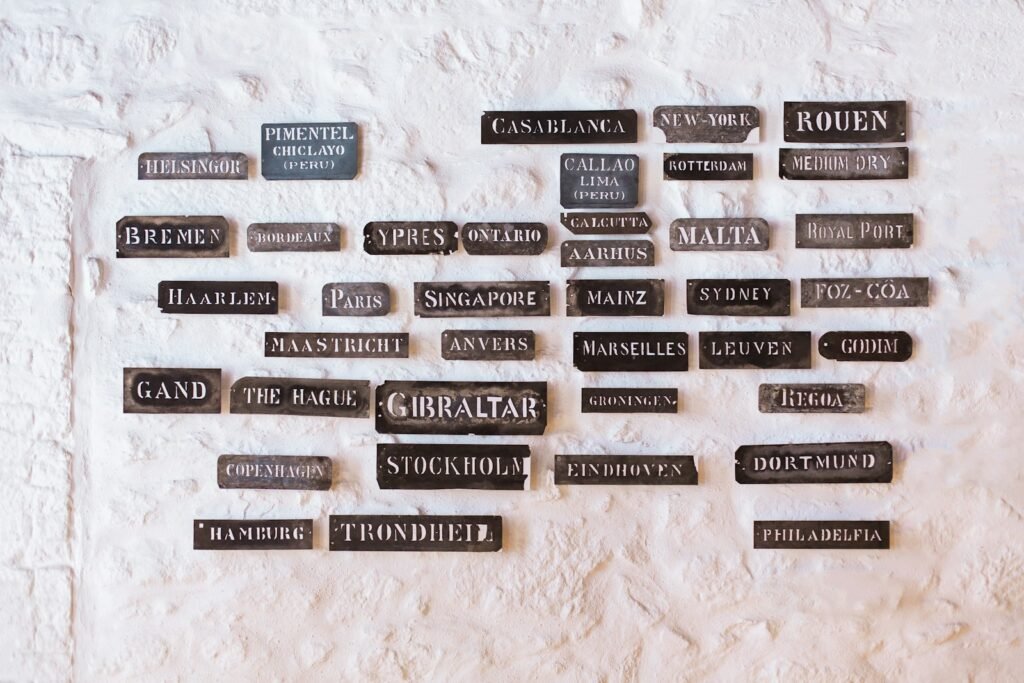 CASABLANCA
NEW-YORK
ROUEN
PIMENTEL
CHICLAYO
(PERU)
HELSINGOR
CALLAO
LIMA
(PERU)
ROTTERDAM
MEDIUM DRY
BREMEN
BORDEAUX
YPRES
ONTARIO
CALCUTTA
AARHUS
MALTA
ROYAL PORT
HAARLEM
PARIS
SINGAPORE
MAINZ
SYDNEY
FOZ-CÔA
MAASTRICHT
ANVERS
MARSEILLES
LEUVEN
GODIM
GAND
THE HAGUE
GIBRALTAR
GRONINGEN
REGOA
COPENHAGEN
STOCKHOLM
EINDHOVEN
DORTMUND
HAMBURG
TRONDHEI
PHILADELFIA